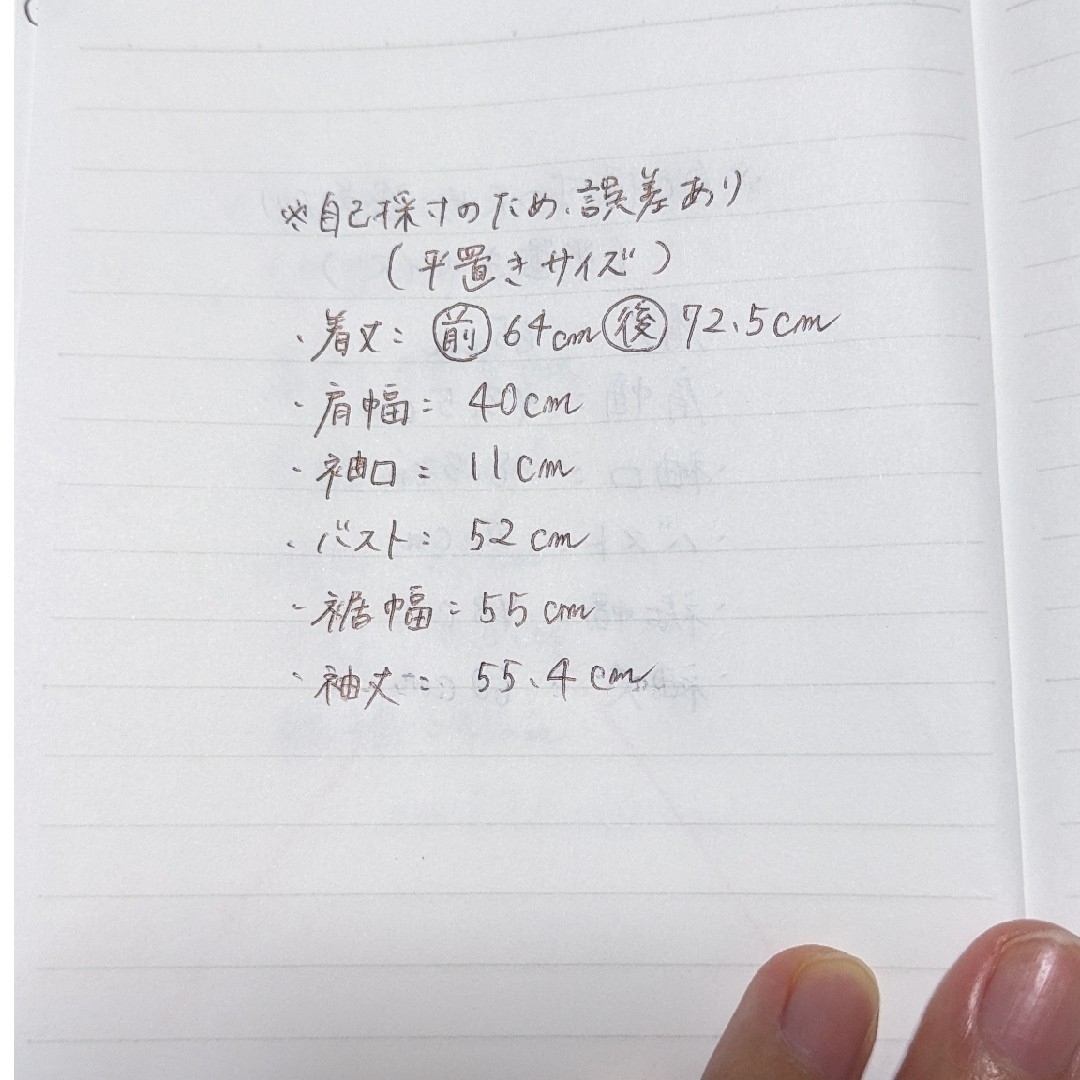 ※自己採寸のため、誤差あり
(平置きサイズ)
・着丈: 前 64cm 後 72.5cm
・肩幅: 40cm
・袖口: 11cm
・バスト: 52cm
・裾幅: 55cm
・袖丈: 55.4cm